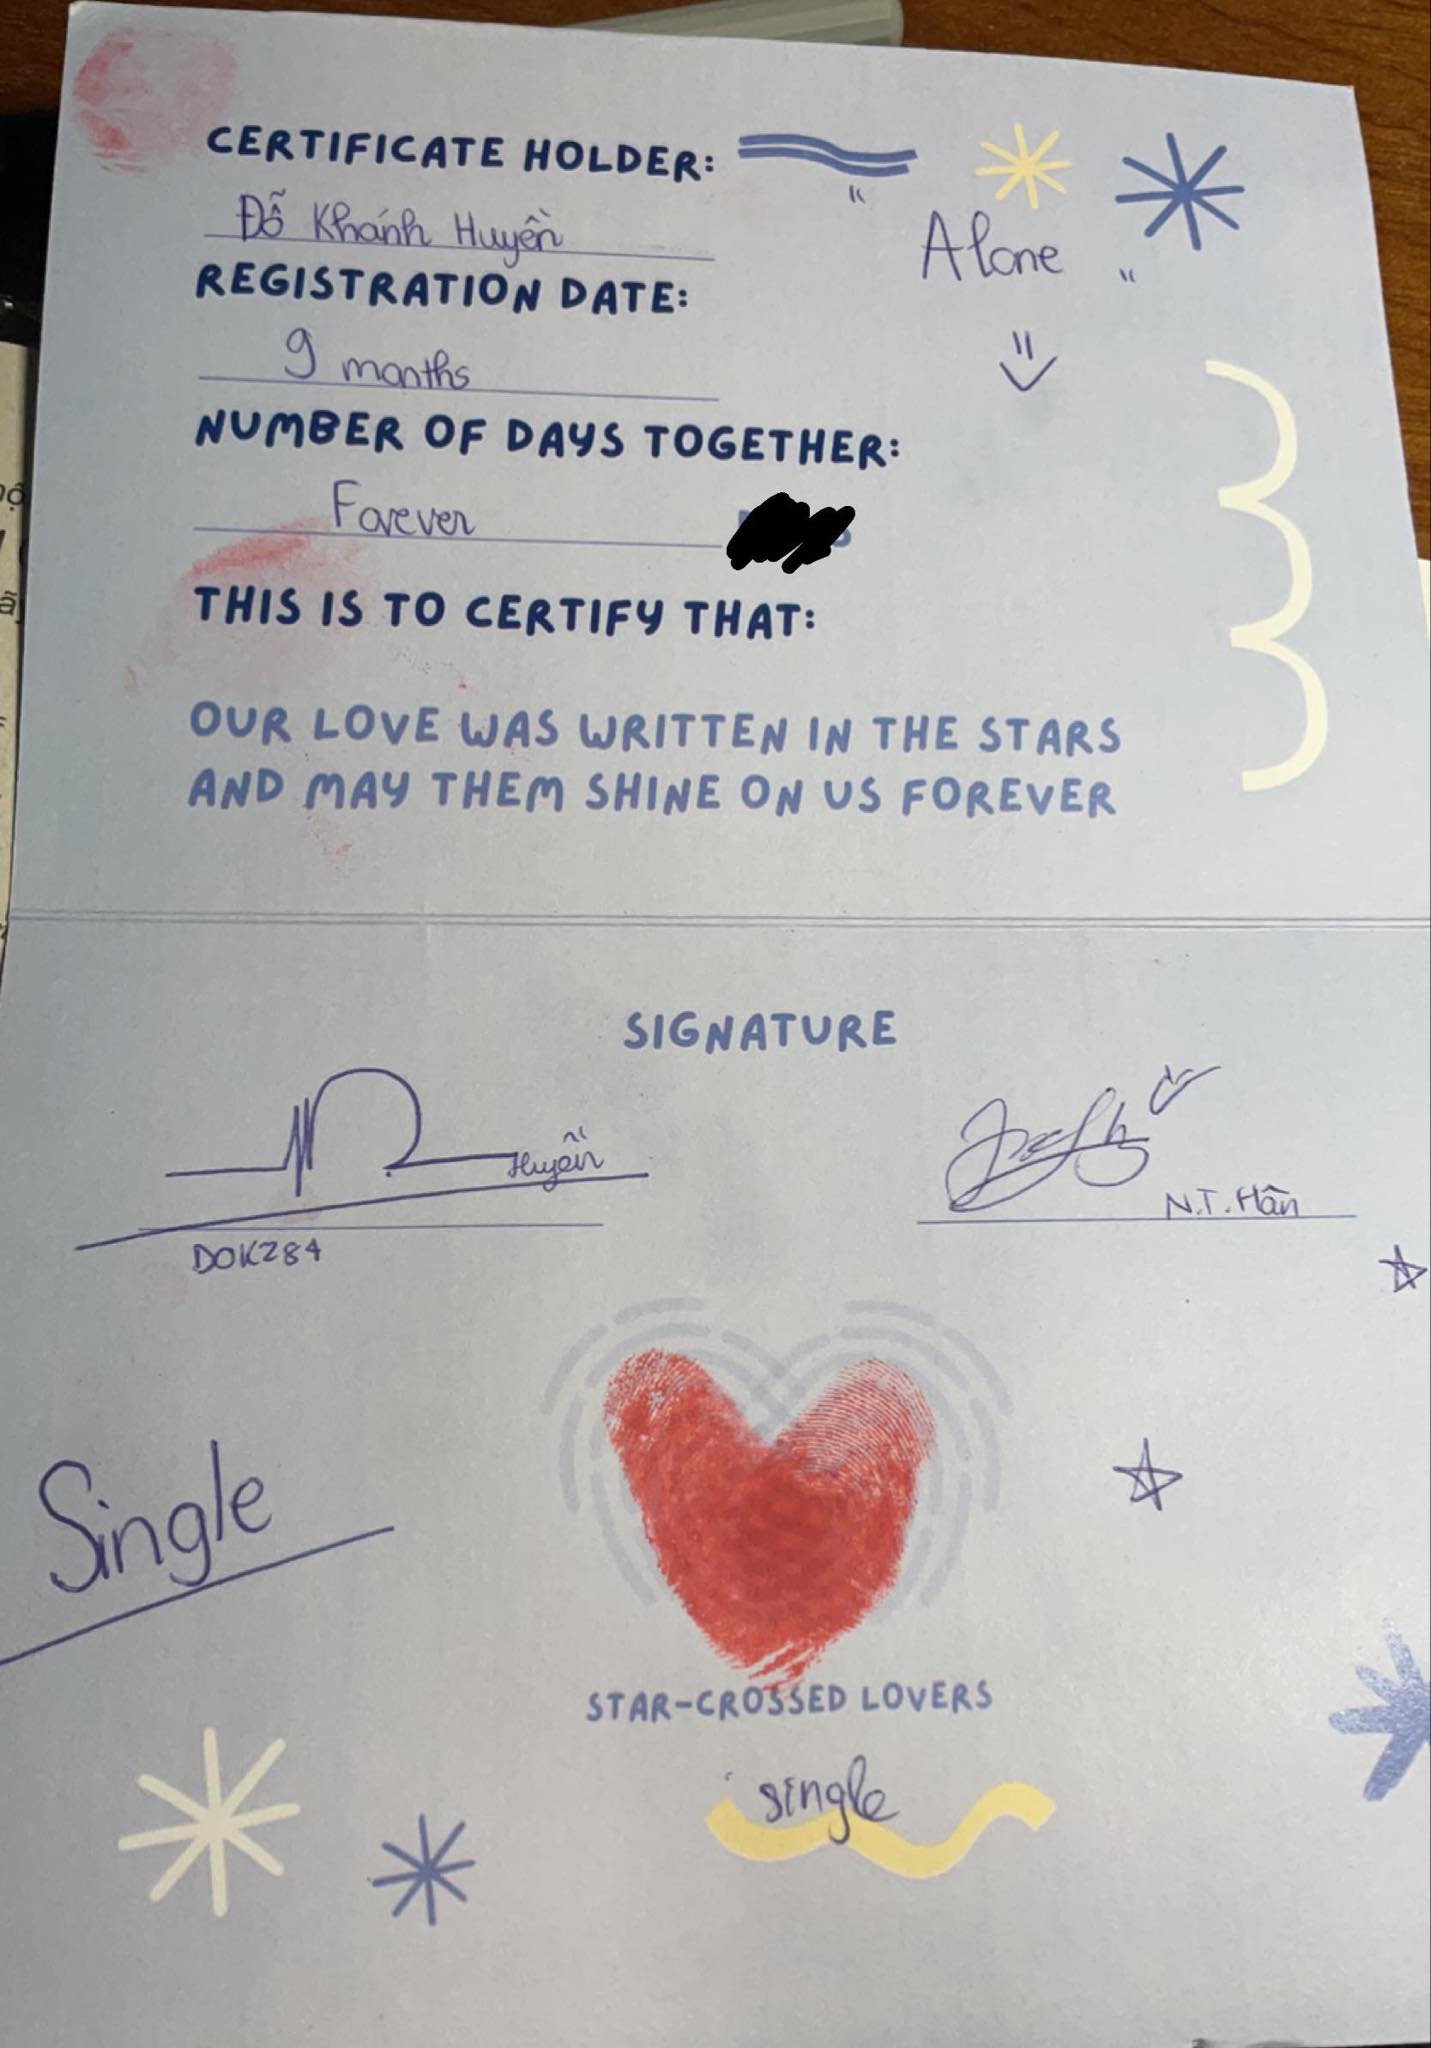 CERTIFICATE HOLDER:
Đỗ Khánh Huyền
"Alone"
REGISTRATION DATE:
9 months
NUMBER OF DAYS TOGETHER:
Forever
THIS IS TO CERTIFY THAT:
OUR LOVE WAS WRITTEN IN THE STARS
AND MAY THEM SHINE ON US FOREVER
SIGNATURE
Huyền
N.T. Hân
DOKZ84
Single
STAR-CROSSED LOVERS
single